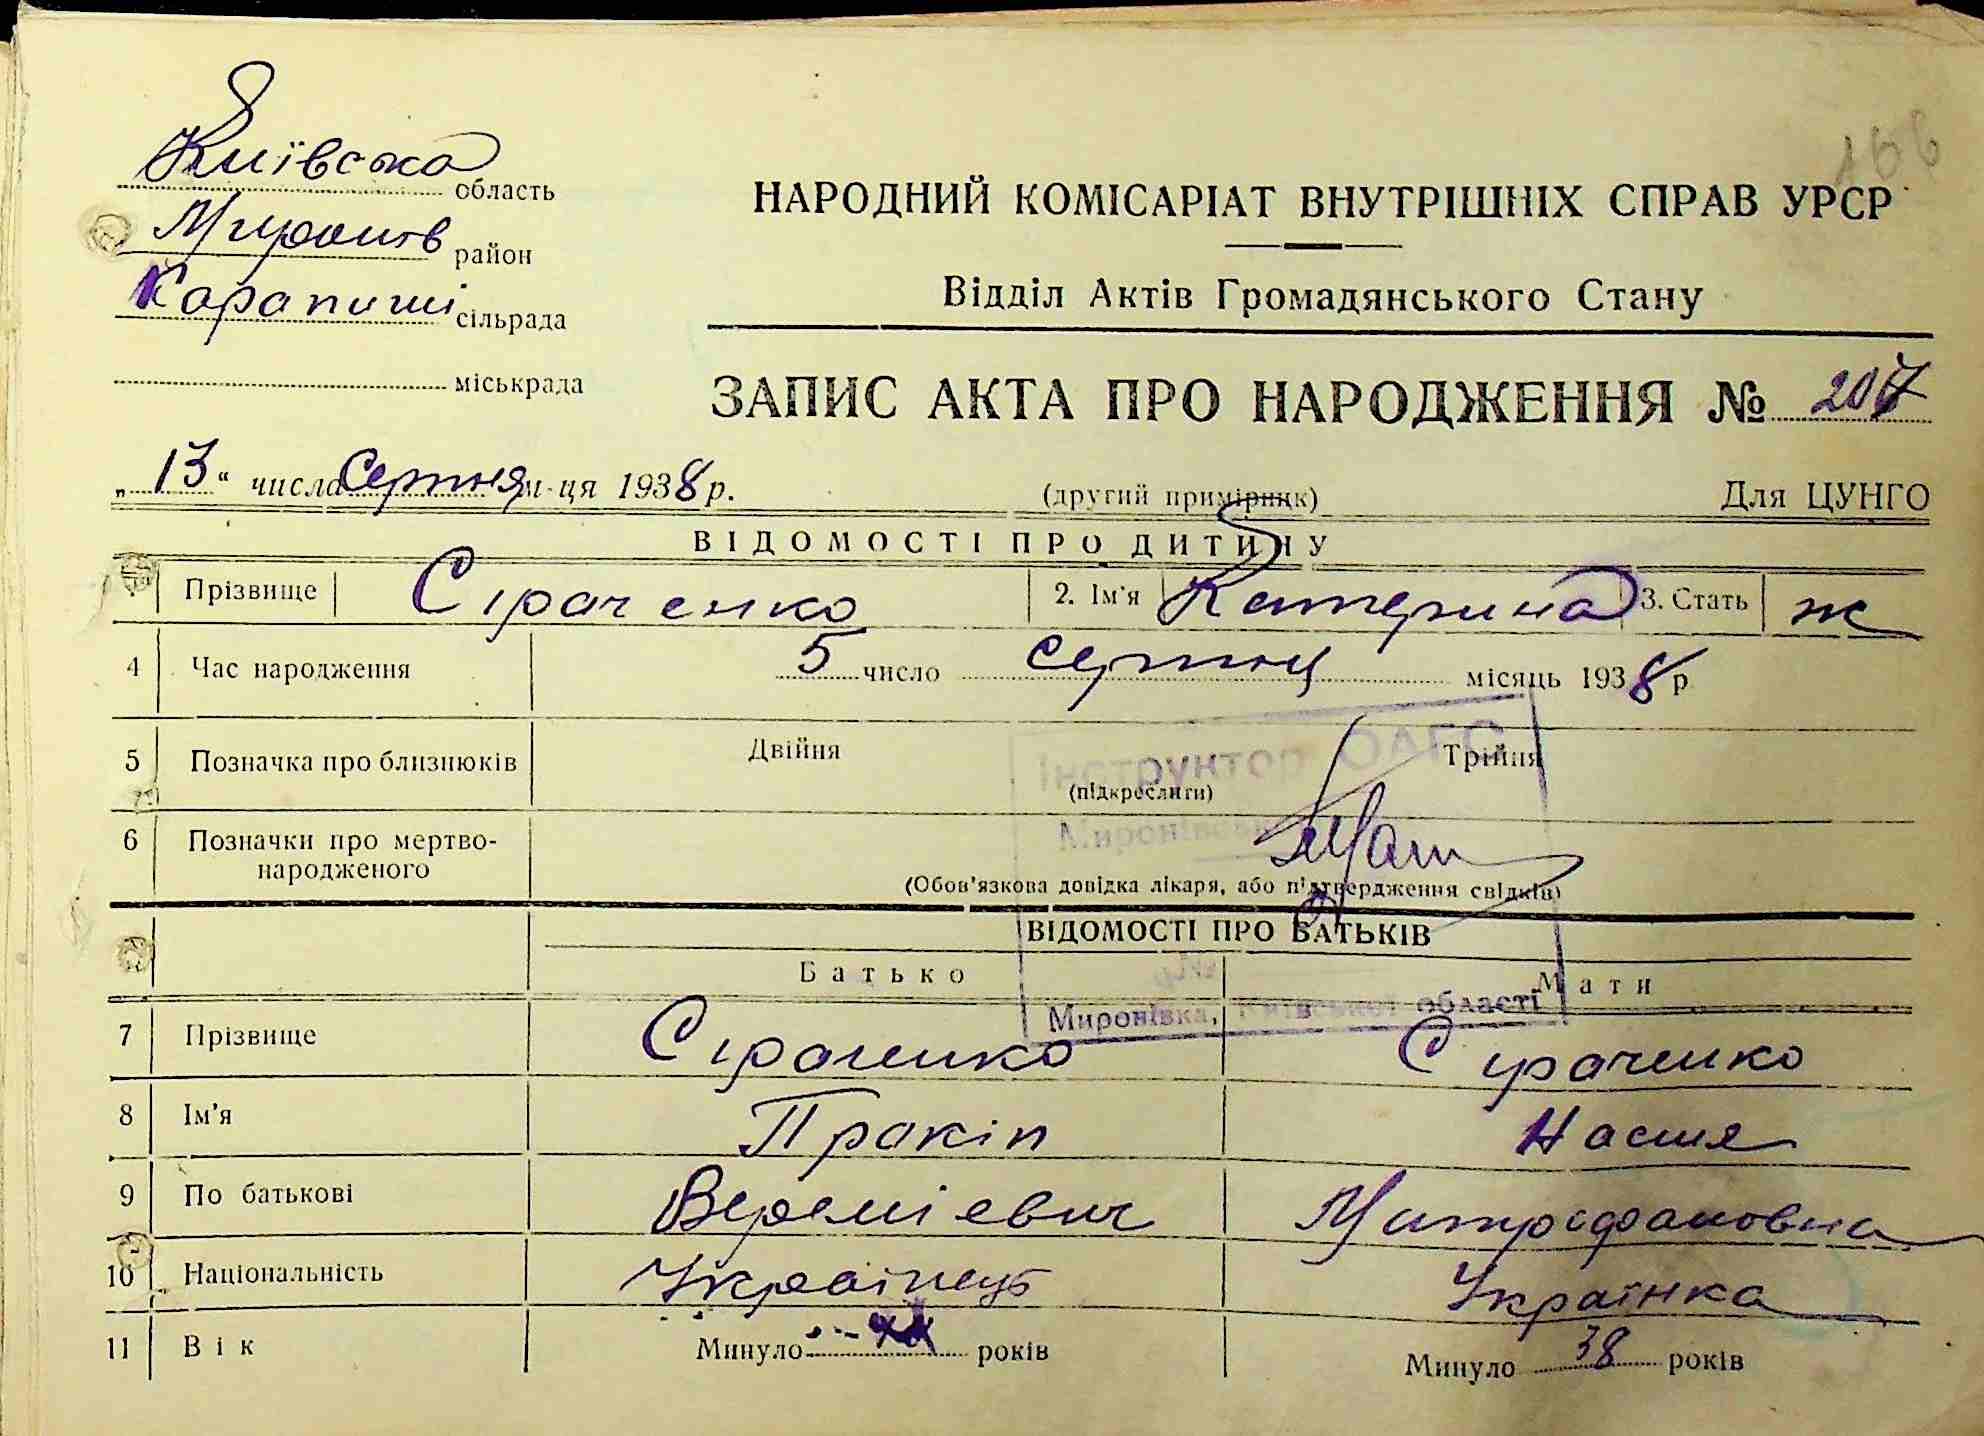 166
Київська область
Миронов район
Карапиші сільрада
міськрада
НАРОДНИЙ КОМІСАРІАТ ВНУТРІШНІХ СПРАВ УРСР
Відділ Актів Громадянського Стану
ЗАПИС АКТА ПРО НАРОДЖЕННЯ № 207
„13“ числа Серпня м-ця 1938 р.
(другий примірник)
Для ЦУНГО
ВІДОМОСТІ ПРО ДИТИНУ
Прізвище Сіраченко 2. Ім'я Катерина 3. Стать ж
4 Час народження 5 число серпня місяць 1938 р
5 Позначка про близнюків Двійня Трійня
(підкреслити)
6 Позначки про мертво-
народженого
(Обов'язкова довідка лікаря, або підтвердження свідків)
Інструктор ОАГС
Миронівка, Київської області
ВІДОМОСТІ ПРО БАТЬКІВ
Батько Мати
7 Прізвище Сіраченко Сіраченко
8 Ім'я Пракіп Настя
9 По батькові Веремієвич Митрофановна
10 Національність Українець Українка
11 Вік Минуло років Минуло 38 років